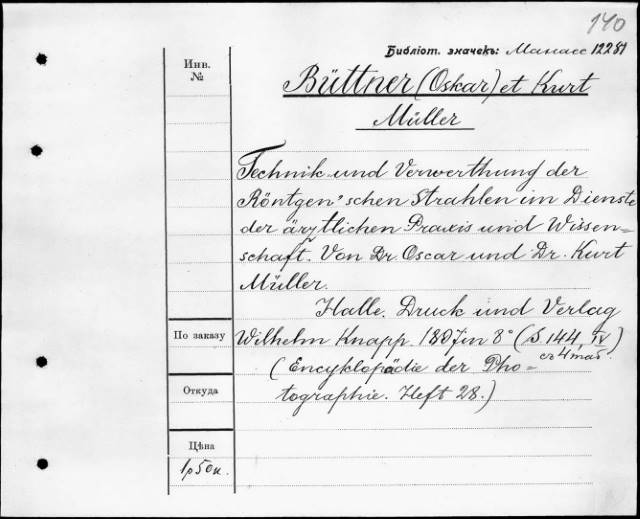 140
Библіот. значекъ: Манасс 12281
Инв.
№
Büttner (Oskar) et Kurt
Müller
Technik und Verwerthung der
Röntgen'schen Strahlen im Dienste
der ärztlichen Praxis und Wissen=
schaft. Von Dr. Oscar und Dr. Kurt
Müller.
Halle. Druck und Verlag
По заказу
Wilhelm Knapp. 1897 in 8° (S. 144, IV)
съ 4 таб.
(Encyklopädie der Pho=
Откуда
tographie. Heft 28.)
Цѣна
1р50к.